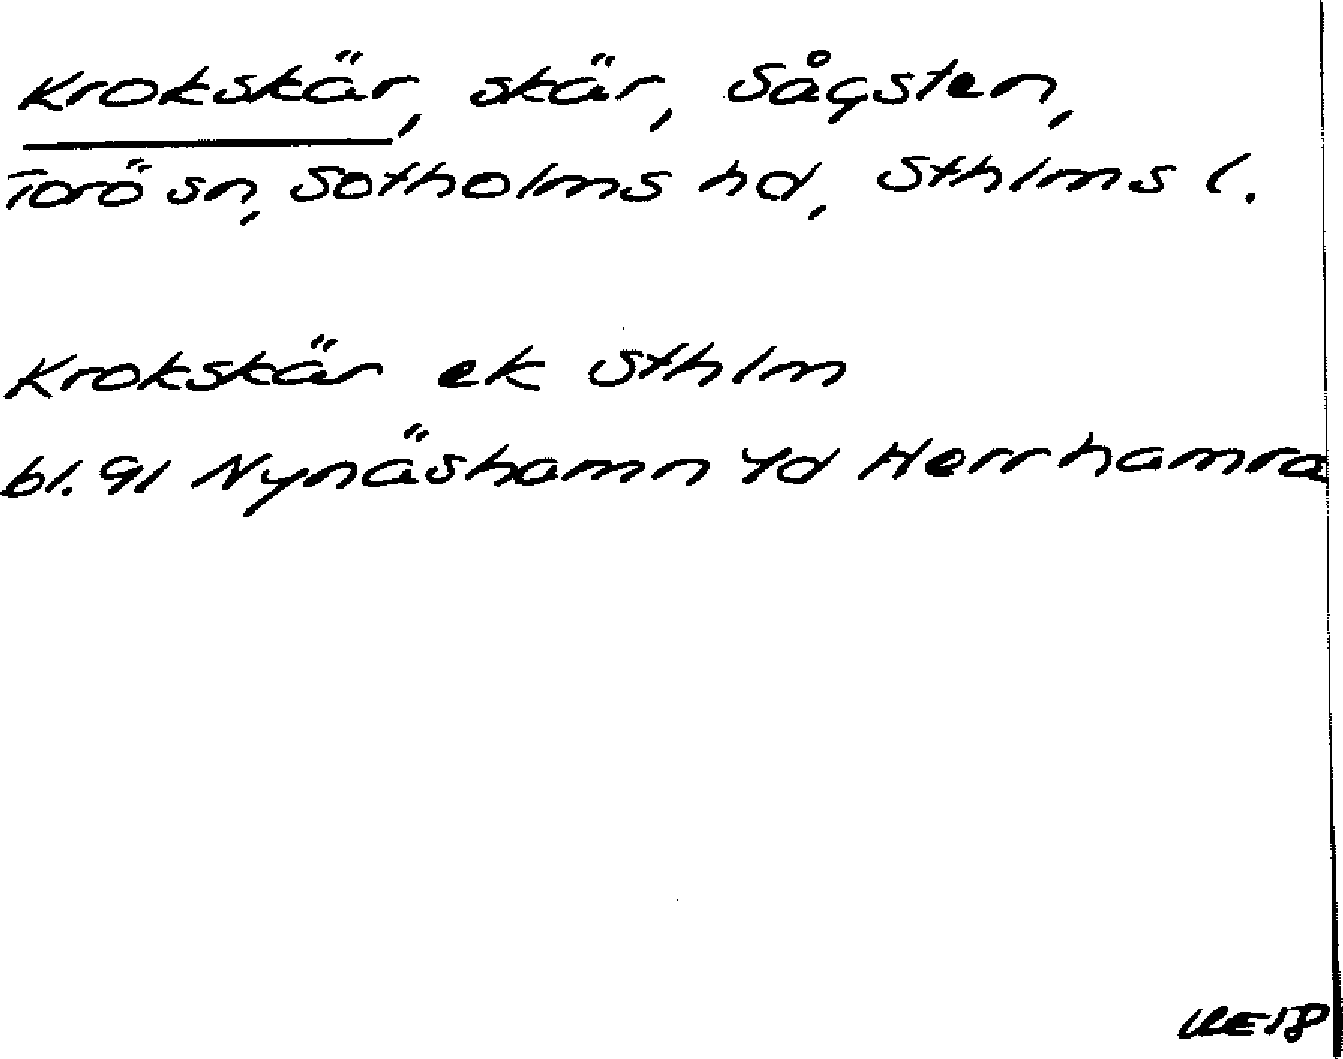 Krokskär, skär, Sågsten,
Torö sn, Sotholms hd, Sthlms l.
Krokskär ek Sthlm
bl. 91 Nynäshamn Yd Herrhamra